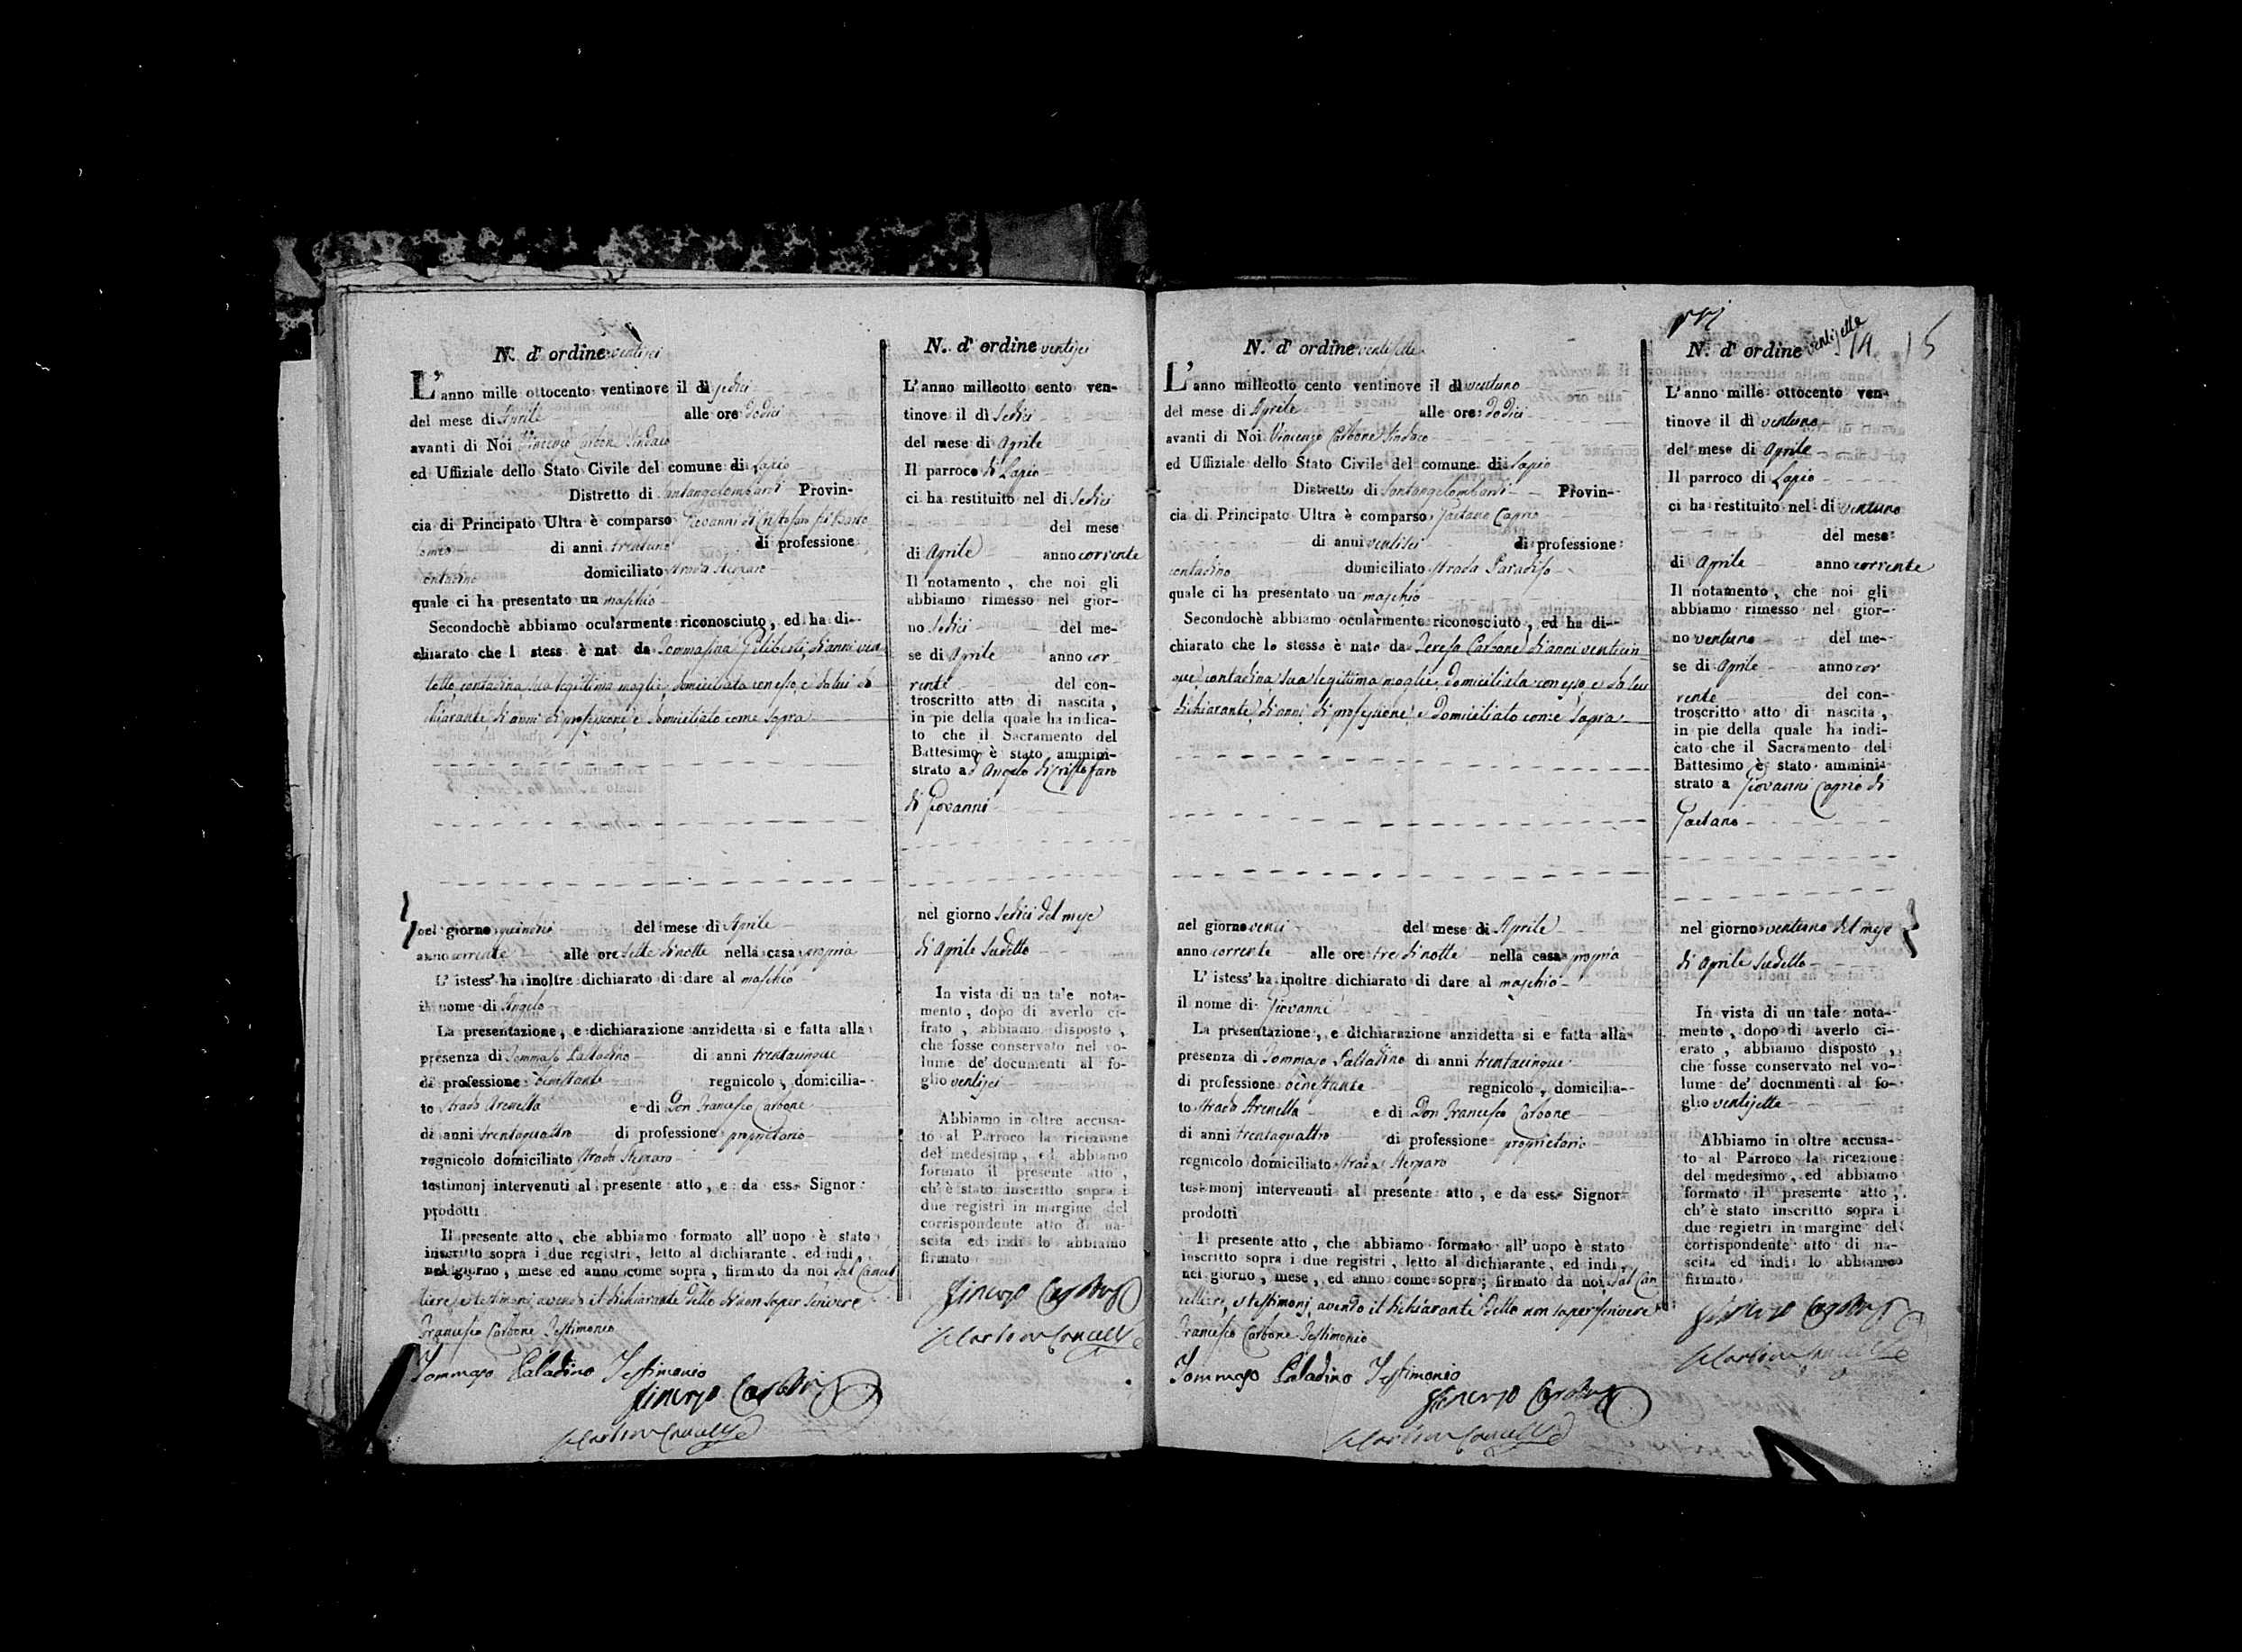 N. d'ordine ventisei
L'anno mille ottocento ventinove il dì sedici
del mese di Aprile alle ore dodici
avanti di Noi Vincenzo Carbone Sindaco
ed Uffiziale dello Stato Civile del comune di Lapio
Distretto di Santangelombardi Provin-
cia di Principato Ultra è comparso Giovanni di Cristofaro di Barto
lomeo di anni trentuno di professione
contadino domiciliato strada
quale ci ha presentato un maschio
Secondochè abbiamo ocularmente riconosciuto, ed ha di-
chiarato che l stess è nat da Tommasina Feliberti, di anni ven
totto contadina sua legittima moglie, domiciliata con esso, e da lui di
chiarante di anni di professione e domiciliato come sopra
nel giorno quindici del mese di Aprile
anno corrente alle ore sette di notte nella casa propria
L' istess' ha inoltre dichiarato di dare al maschio
il nome di Angelo
La presentazione, e dichiarazione anzidetta si e fatta alla
presenza di Tommaso Palladino di anni trentacinque
di professione benestante regnicolo, domicilia-
to strada Arenella e di Don Francesco Carbone
di anni trentaquattro di professione proprietario
regnicolo domiciliato strada
testimonj intervenuti al presente atto, e da ess Signor
prodotti
Il presente atto, che abbiamo formato all' uopo è stato
inscritto sopra i due registri, letto al dichiarante, ed indi,
nel giorno, mese ed anno come sopra, firmato da noi dal Cancel
liere, e testimonj avendo il dichiarante detto di non saper scrivere
Francesco Carbone Testimonio
Tommaso Paladino Testimonio
N. d'ordine ventisei
L'anno milleotto cento ven-
tinove il dì sedici
del mese di Aprile
Il parroco di Lapio
ci ha restituito nel di sedici
del mese
di Aprile anno corrente
Il notamento, che noi gli
abbiamo rimesso nel gior-
no sedici del me-
se di Aprile anno cor
rente del con-
troscritto atto di nascita,
in pie della quale ha indica-
to che il Sacramento del
Battesimo è stato ammini-
strato ad Angelo di Cristofaro
di Giovanni
nel giorno sedici del mese
di Aprile sudetto
In vista di un tale nota-
mento, dopo di averlo ci-
frato, abbiamo disposto,
che fosse conservato nel vo-
lume de' documenti al fo-
glio ventisei
Abbiamo in oltre accusa-
to al Parroco la ricezione
del medesimo, ed abbiamo
formato il presente atto,
ch' è stato inscritto sopra i
due registri in margine del
corrispondente atto di na-
scita ed indi lo abbiamo
firmato
N. d'ordine ventisette
L'anno milleotto cento ventinove il dì ventuno
del mese di Aprile alle ore dodici
avanti di Noi Vincenzo Carbone Sindaco
ed Uffiziale dello Stato Civile del comune di Lapio
Distretto di Santangelombardi Provin-
cia di Principato Ultra è comparso Gaetano Caprio
di anni ventisei di professione
contadino domiciliato strada Paradiso
quale ci ha presentato un maschio
Secondochè abbiamo ocularmente riconosciuto, ed ha di-
chiarato che lo stesso è nato da Teresa Carbone di anni venticin
que contadina sua legittima moglie domiciliata con esso e da lui
dichiarante di anni di professione e domiciliato come sopra
nel giorno venti del mese di Aprile
anno corrente alle ore tre di notte nella casa propria
L' istess' ha inoltre dichiarato di dare al maschio
il nome di Giovanni
La presentazione, e dichiarazione anzidetta si e fatta alla
presenza di Tommaso Palladino di anni trentacinque
di professione benestante regnicolo, domicilia-
to strada Arenella e di Don Francesco Carbone
di anni trentaquattro di professione proprietario
regnicolo domiciliato strada
testimonj intervenuti al presente atto, e da ess Signor
prodotti
Il presente atto, che abbiamo formato all' uopo è stato
inscritto sopra i due registri, letto al dichiarante, ed indi,
nel giorno, mese, ed anno come sopra; firmato da noi, dal Can
celliere, e testimonj, avendo il dichiarante detto non saper scrivere
Francesco Carbone Testimonio
Tommaso Paladino Testimonio
14 15
N. d'ordine ventisette
L'anno mille ottocento ven-
tinove il dì ventuno
del mese di Aprile
Il parroco di Lapio
ci ha restituito nel di ventuno
del mese
di Aprile anno corrente
Il notamento, che noi gli
abbiamo rimesso nel gior-
no ventuno del me-
se di Aprile anno cor
rente del con-
troscritto atto di nascita,
in pie della quale ha indi-
cato che il Sacramento del
Battesimo è stato ammini-
strato a Giovanni Caprio di
Gaetano
nel giorno ventuno del mese
di Aprile sudetto
In vista di un tale nota-
mento, dopo di averlo ci-
erato, abbiamo disposto,
che fosse conservato nel vo-
lume de' documenti al fo-
glio ventisette
Abbiamo in oltre accusa-
to al Parroco la ricezione
del medesimo, ed abbiamo
formato il presente atto,
ch' è stato inscritto sopra i
due regietri in margine del
corrispondente atto di na-
scita ed indi lo abbiamo
firmato